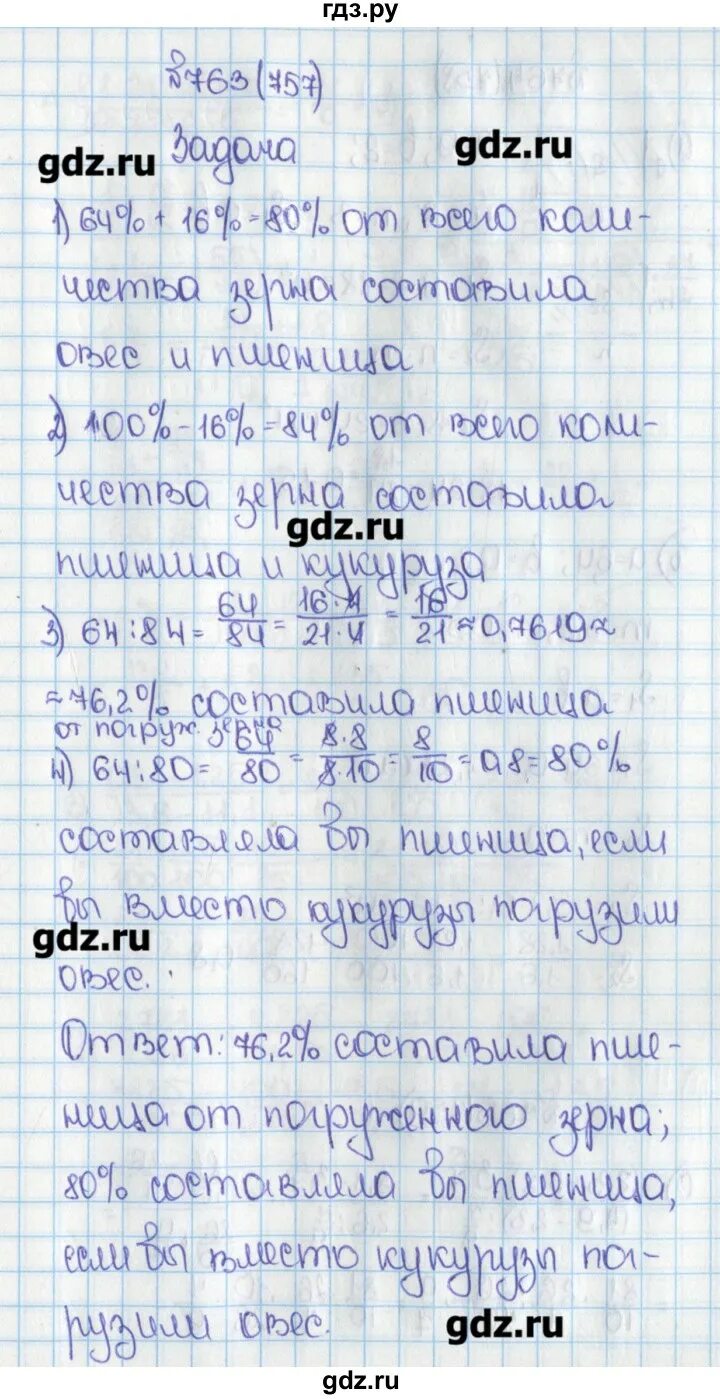 гдз.ру
№763(757)
Задача
gdz.ru
gdz.ru
1) 64% + 16% = 80% от всего коли-
чества зерна составила
овес и пшеница
2) 100% - 16% = 84% от всего коли-
чества зерна составила
gdz.ru
пшеница и кукуруза
3) 64:84 = 64/84 = 16·4/21·4 = 16/21 ≈ 0,7619 ≈
≈ 76,2% составила пшеница
от погруж. зерна
4) 64:80 = 64/80 = 8·8/8·10 = 8/10 = 0,8 = 80%
составляла бы пшеница, если
бы вместо кукурузы погрузили
gdz.ru
овес.
Ответ: 76,2% составила пше-
ница от погруженного зерна;
80% составляла бы пшеница,
если бы вместо кукурузы по-
грузили овес.
gdz.ru
gdz.ru